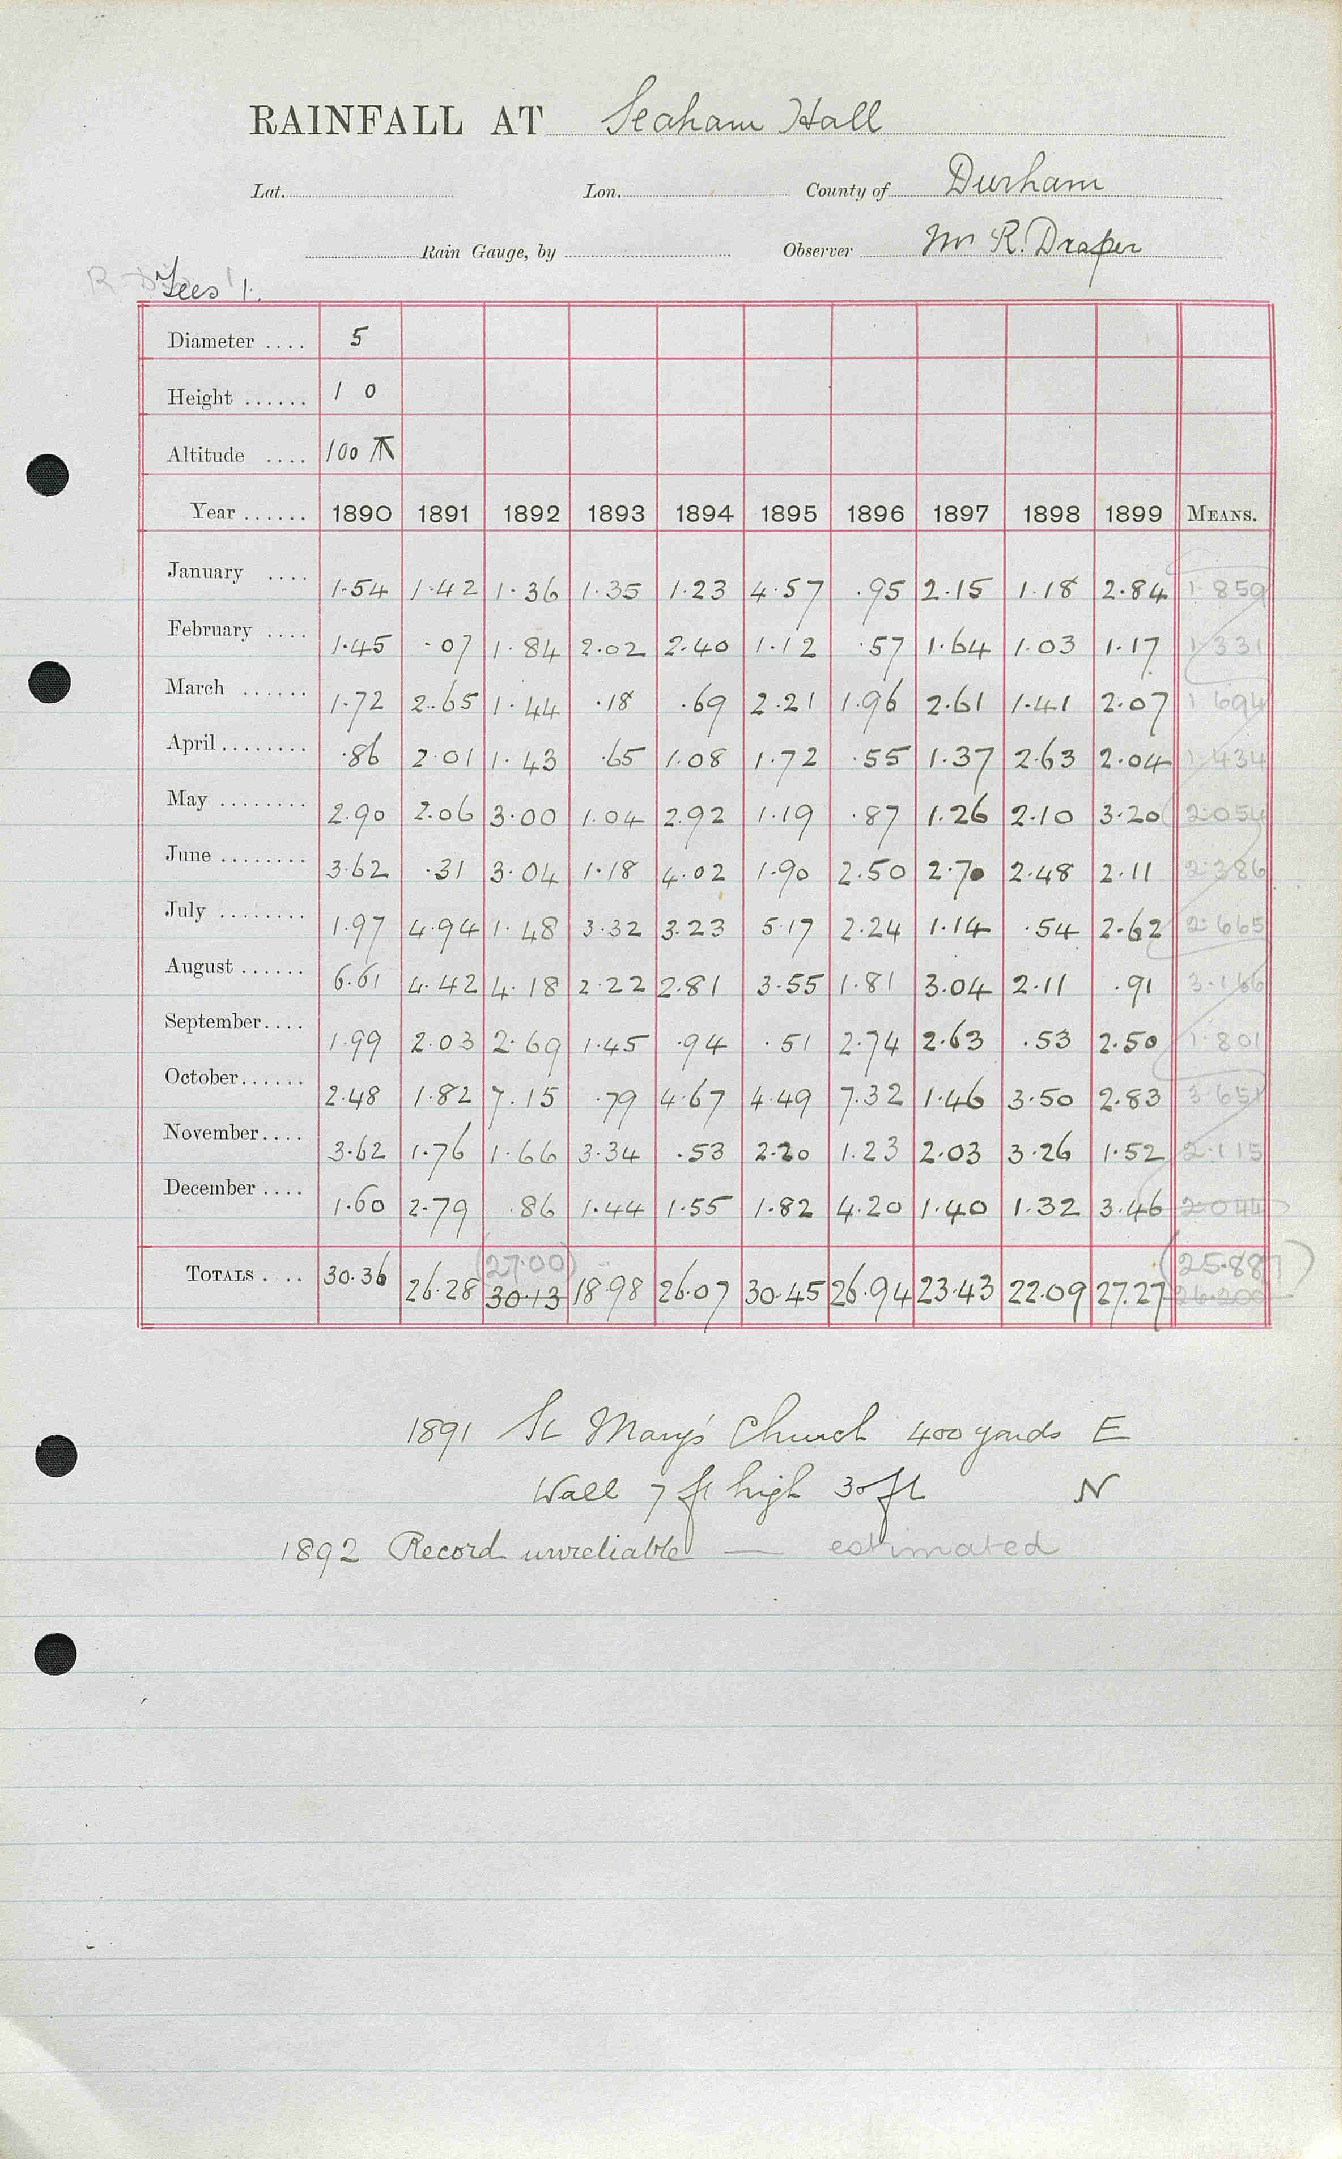 RAINFALL AT Seaham Hall
Lat. Lon. County of Durham
Rain Gauge, by Observer Mr R. Draper
Tees 1.
Diameter .... 5
Height ...... 1 0
Altitude .... 100
Year ...... 1890 1891 1892 1893 1894 1895 1896 1897 1898 1899 MEANS.
January .... 1.54 1.42 1.36 1.35 1.23 4.57 .95 2.15 1.18 2.84 1.859
February .... 1.45 .07 1.84 2.02 2.40 1.12 .57 1.64 1.03 1.17 1.331
March ...... 1.72 2.65 1.44 .18 .69 2.21 1.96 2.61 1.41 2.07 1.694
April ........ .86 2.01 1.43 .65 1.08 1.72 .55 1.37 2.63 2.04 1.434
May ........ 2.90 2.06 3.00 1.04 2.92 1.19 .87 1.26 2.10 3.20 2.054
June ........ 3.62 .31 3.04 1.18 4.02 1.90 2.50 2.70 2.48 2.11 2.386
July ........ 1.97 4.94 1.48 3.32 3.23 5.17 2.24 1.14 .54 2.62 2.665
August ...... 6.61 4.42 4.18 2.22 2.81 3.55 1.81 3.04 2.11 .91 3.166
September.... 1.99 2.03 2.69 1.45 .94 .51 2.74 2.63 .53 2.50 1.801
October...... 2.48 1.82 7.15 .79 4.67 4.49 7.32 1.46 3.50 2.83 3.651
November.... 3.62 1.76 1.66 3.34 .53 2.20 1.23 2.03 3.26 1.52 2.115
December .... 1.60 2.79 .86 1.44 1.55 1.82 4.20 1.40 1.32 3.46 2.044
(27.00) (25.887)
TOTALS .... 30.36 26.28 30.13 18.98 26.07 30.45 26.94 23.43 22.09 27.27 26.200
1891 St Mary's Church 400 yards E
Wall 7 ft high 30 ft N
1892 Record unreliable — estimated